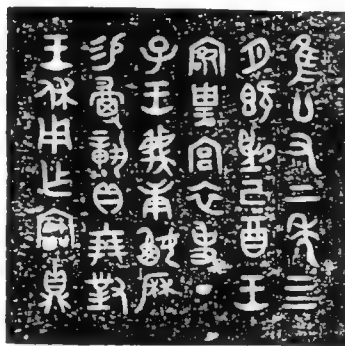 隹廿又二年亖
月既望己酉王
客琱宮衣事丁
子王蔑庚嬴厤
易祼章貝十朋對
王休用乍寶貞